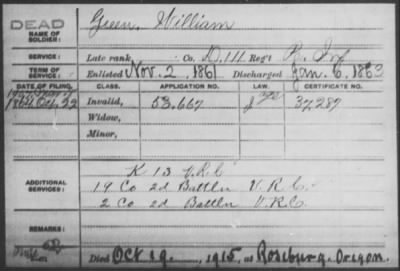 DEAD
NAME OF SOLDIER:
Green, William
SERVICE:
Late rank Co. D, 111 Reg't Inf
TERM OF SERVICE:
Enlisted Nov. 2, 1861 Discharged Jan. 6, 1863
DATE OF FILING. CLASS. APPLICATION NO. LAW. CERTIFICATE NO.
1864 Oct. 22 Invalid, 53,667 37,287
Widow,
Minor,
ADDITIONAL SERVICES:
K 13 V.R.C.
19 Co 2d Battln V.R.C.
2 Co 2d Battln V.R.C.
REMARKS:
Died Oct 19, 1915, at Roseburg, Oregon.